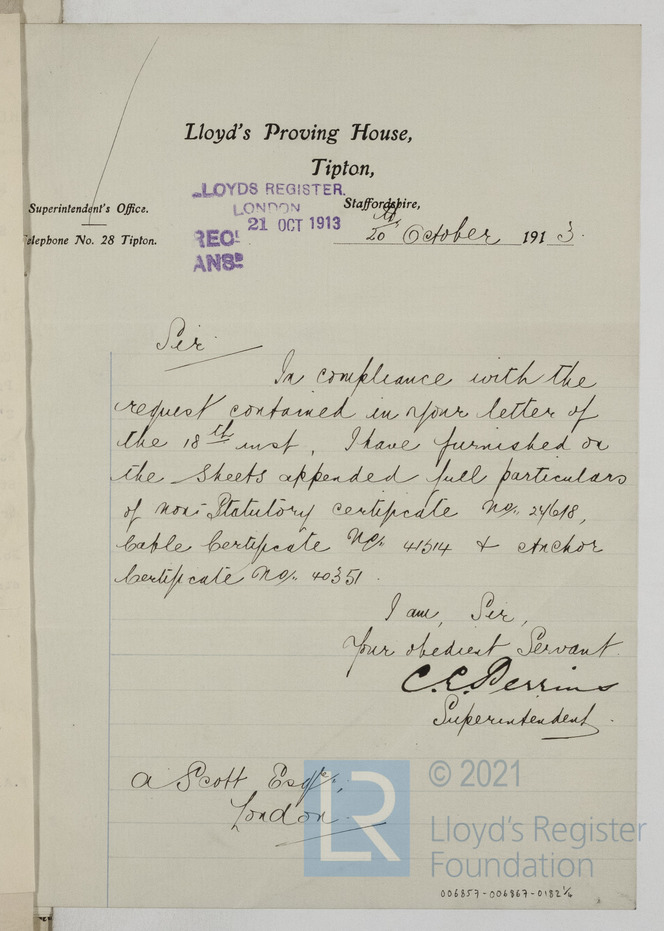 Lloyd's Proving House,
Tipton,
Staffordshire,
Superintendent's Office.
Telephone No. 28 Tipton.
LLOYDS REGISTER.
LONDON
21 OCT 1913
REC^D
ANS^D
20th October 1913.
Sir
In compliance with the
request contained in your letter of
the 18th inst, I have furnished on
the sheets appended full particulars
of non-Statutory certificate No.
Cable Certificate No. 41514 & Anchor
Certificate No. 40351.
I am, Sir,
Your obedient Servant.
C.E. Perrins
Superintendent.
A Scott Esqre,
London.
LR
© 2021
Lloyd's Register
Foundation
006857-006867-0182 1/6